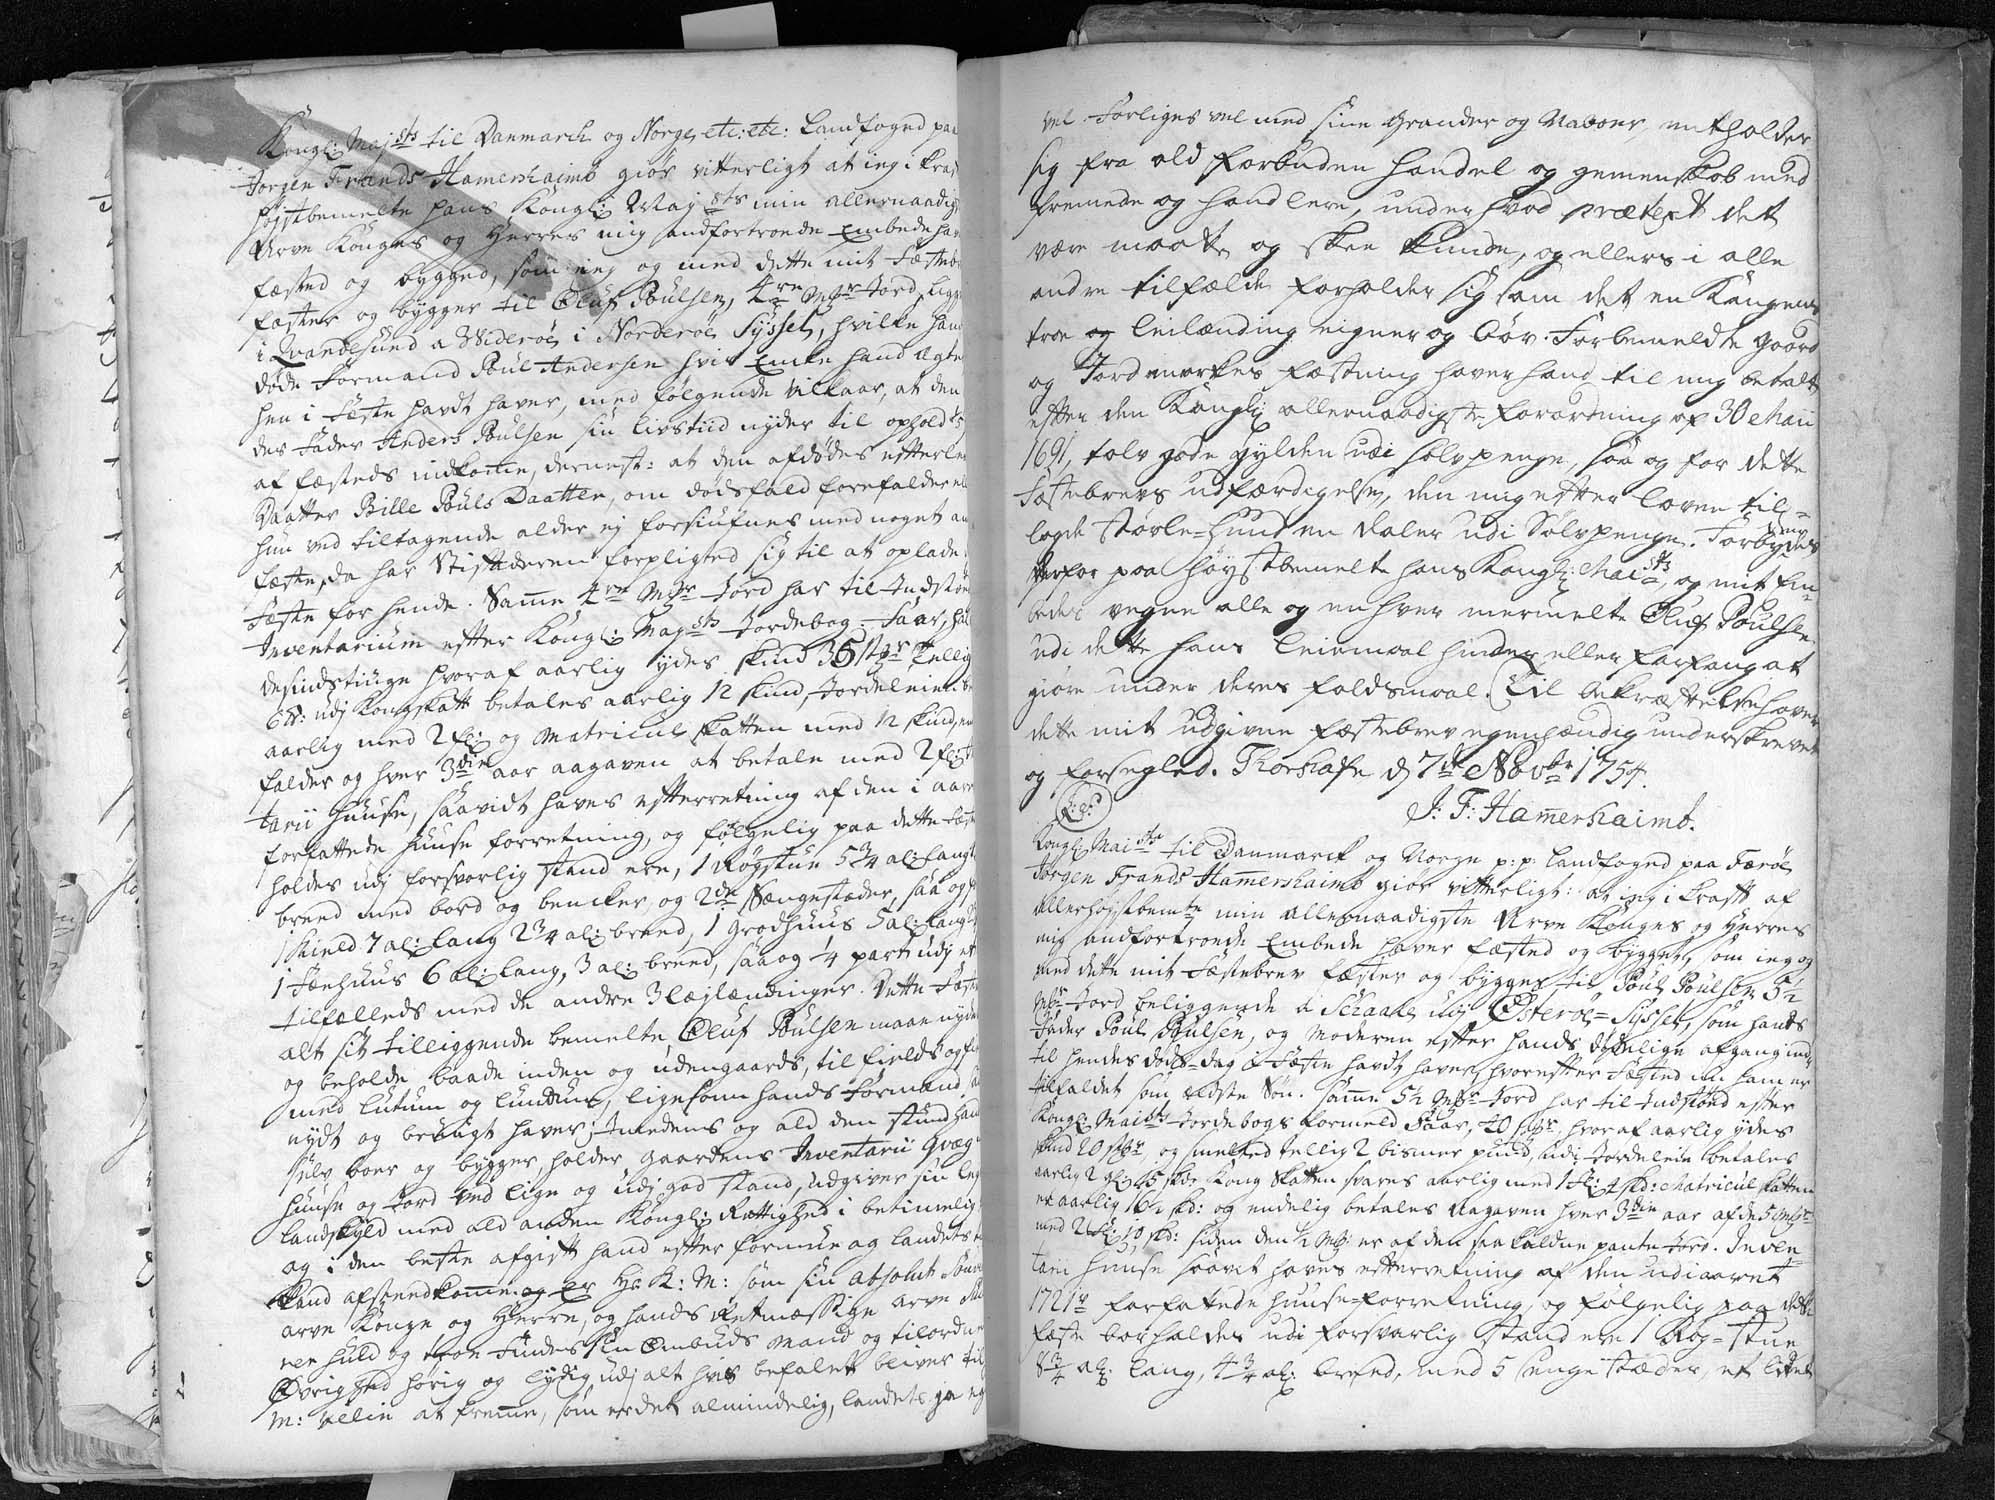 Kongl: Majsts til Danmarch og Norge, etc: etc: Landfoged paa
Jørgen Frands Hamershaimb giør vitterligt at ieg i kraft
høystbemelte hans Kongl: Mayssts min allernaadigst
Arve Konges og Herres mig andfortroede Embede har
fæsted og bygged, som ieg og med dette mit Fæsteb
fæster og bygger til Oluf Poulsen, 4re Mkr Jord, ligge
i Qvandesund a Widerøe i Norderøe Syssel, hvilke hans
døde Formand Poul Andersen hvis Encke hand ægte
hen i Fæste havdt haver, med følgende vilkaar, at den
des Fader Anders Poulsen sin livstiid nyder til ophold
af fæsteds indkome, dernest: at den afdødes efterle
Daatter Bille Pouls Daatter, om dødsfald forefalder el
hun ved tiltagende alder ej forsiufnes med noget an
fæste, da har Stiffaderen forpligted sig til at oplade
Fæste for hende. Same 4re Mkr Jord har til Indstød
Inventarium efter Kongl: Maysts Jordebog: Faar, hal
desindstiuge hvoraf aarlig ydes skind 36 stkr tellig
6 ℔: udj Kongskatt betales aarlig 12 skind, Jordeleien be
aarlig med 2 fl: og Matricul skatten med 12 skind, en
falder og hver 3die aar aagaven at betale med 2 fl:
tarii huuse, saavidt haves efterretning af den i aar
forfattede huuse forretning, og følgelig paa dette Fæst
holdes udj forsvarlig stand ere, 1 Røgstue 5 3/4 al: lang
breed med bord og bencker, og 2de Sængestæder, saa og
1 Hield 7 al: lang 2 3/4 al: breed, 1 Grodhuus 5 al: lang
1 Fæehuus 6 al: lang, 3 al: breed, saa og 1/4 part udj et
tilfælleds med de andre 3 læjlændinger. Dette Fæste
alt sit tilliggende bemelte Oluf Poulsen maae nyde
og beholde baade inden og udengaards, til fields og fi
med lutum og lunnum, ligesom hands Formand
nydt og brugt haver; Imedens og ald den stund hand
sielv boer og bygger, holder Gaardens Inventarii qvæg
huuse og Jord ved lige og udj god stand, udgiver sin leg
landskyld med ald anden Kongl: Rættighed i betimelig
og i den beste afgift hand efter formue og landets
kand afstædkomme og Er Hs K: M: som sin absolut Souv
arve Konge og Herre, og hands Retmæssige arve Suc
ren huld og troe Findes sin Ombuds mand og tilordne
Øvrighed hørig og lydig udj alt hvis befalet bliver til
M: villie at freme, som er det almindelig, landets ja eg
vel forliges vel med sine Grander og Naboer, entholder
sig fra ald forbuden Handel og gemenskab med
fremede og handlere, under hvad prætext det
være maatte og skee kunde, og ellers i alle
andre tilfælde forholder sig som det en Kongens
troe og leilænding eigner og bør. Forbemeldte gaard
og Jordmarkes fæstning haver hand til mig betalt
efter den Kongl: allernaadigste forordning af 30 Maii
1691, tolv gode gylden udi sølvpenge, saa og for dette
Fæstebrevs udfærdigelse, den mig efter loven til=
lagde Støvle=Hud en daler udi Sølvpenge. Forbydes
derfor paa høystbemelte hans Kongl: Maists, og mit Em=
bedes vegne alle og enhver mermelte Oluf Poulsen
udi dette hans leiemaal hinder eller forfang at
giøre under deres faldsmaal. Til bekræftelse haver
dette mit udgivne fæstebrev egenhændig underskrevet
og forsegled. Thorshafn d 7de Novbr 1754.
L: S:
J: F: Hamershaimb.
Kongl Maists til Danmarck og Norge p: p: Landfoged paa Færøe
Jørgen Frands Hamershaimb giør vitterligt: at ieg i kraft af
Allerhøistbemte min allernaadigste Arve Konges og Herres
mig andfortroede Embede haver fæsted og bygget, som ieg og
med dette mit Fæstebrev fæster og bygger til Poul Poulsen 5 1/2
Mkr Jord beliggende a Schaale udj Østerøe=Syssel, som hands
Fader Poul Poulsen, og Moderen efter hands dødelige afgang ind
til hendes døds=dag i Fæste havdt haver, hvorefter Fæsted nu ham er
tilfaldet som ældste Søn. Same 5 1/2 Mkr Jord har til Indstød efter
Kongl Maists Jordebogs formeld Faar, 40 stkr, hvoraf aarlig ydes
skind 20 stkr, og smelted tellig 2 bismer pund, udi Jordeleie betales
aarlig 2 gl: 15 skd: Kong Skatten svares aarlig med 1 fl: 4 skd: Matricul skatten
er aarlig 16 1/2 skd: og endelig betales aagaven hver 3die aar af de 5 Mkr
med 2 fl: 10 skd: siden den 1/2 Mk: er af den saa kaldne pante Jord. Inven=
tarii huuse saavit haves efterretning af den udi aaret
1721 forfattede huuse=forretning, og følgelig paa dette
fæste bør holdes udi forsvarlig stand ere 1 Røg=stue
8 3/4 al: lang, 4 3/4 al: breed, med 5 senge stæder, et lidet